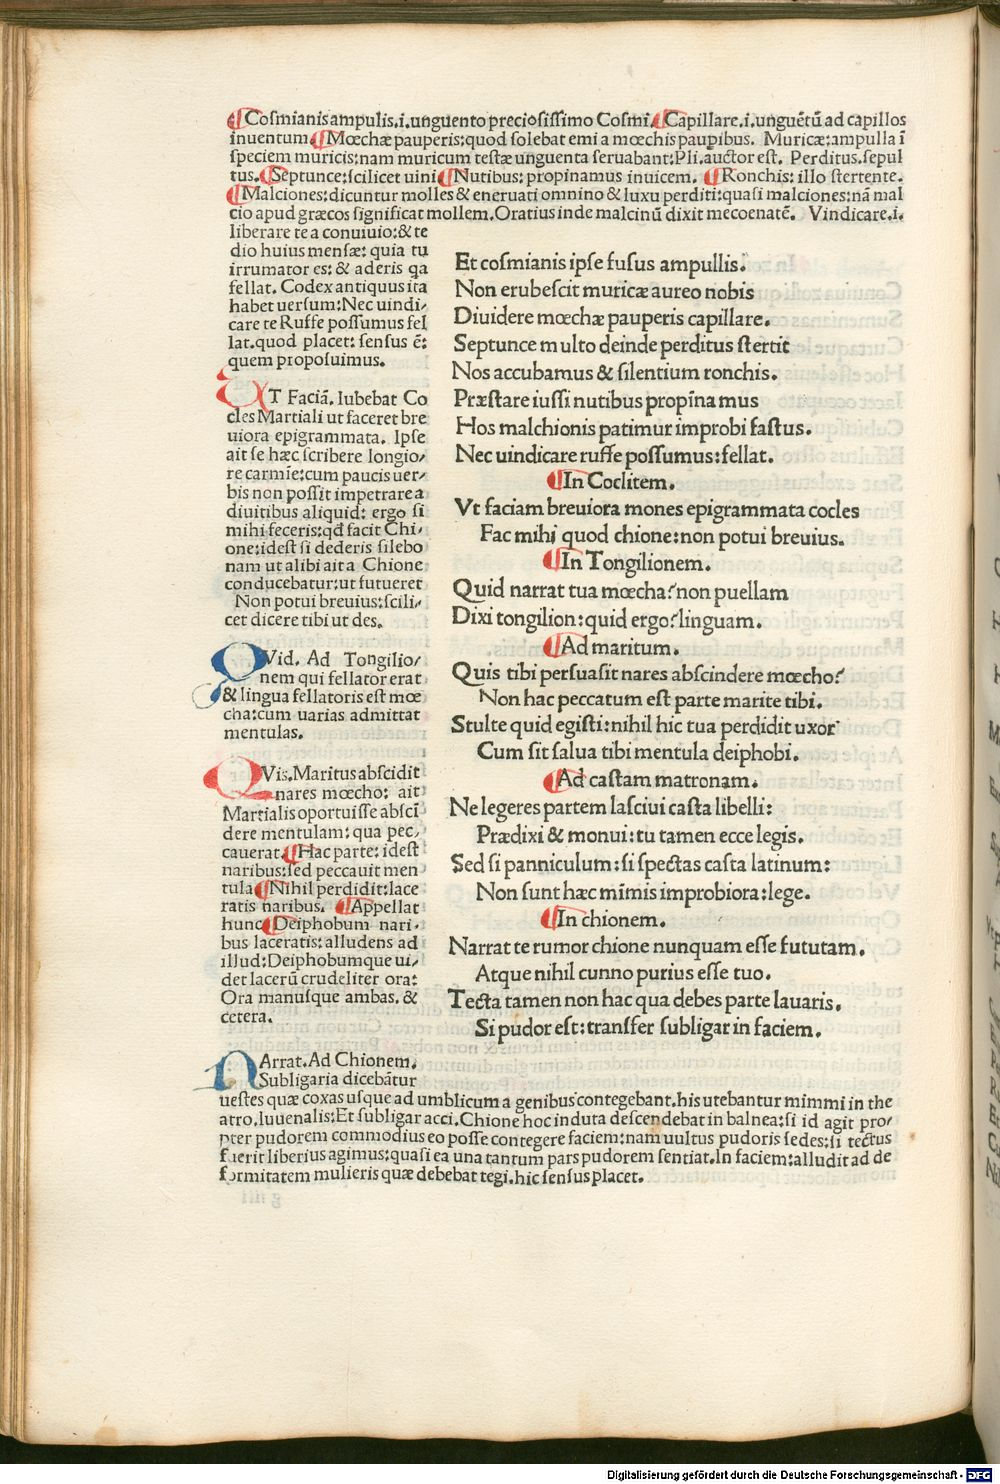 ¶Coſmianis ampulis.i.unguento precioſiſſimo Coſmi.¶Capillare.i.unguētū ad capillos
inuentum.¶Mœchæ pauperis:quod ſolebat emi a mœchis paupibus. Muricæ:ampulla ī
ſpeciem muricis:nam muricum teſtæ unguenta ſeruabant:Pli.auctor eſt. Perditus.ſepul
tus.¶Septunce:ſcilicet uini.¶Nutibus: propinamus inuicem. ¶Ronchis: illo ſtertente.
¶Malciones:dicuntur molles & eneruati omnino & luxu perditi:quaſi malciones:nā mal
cio apud græcos ſignificat mollem.Oratius inde malcinū dixit mecoenatē. Vindicare.i.
liberare te a conuiuio:& te
dio huius menſæ: quia tu
irrumator es: & aderis qa
fellat. Codex antiquus ita
habet uerſum:Nec uindi/
care te Ruffe poſſumus fel
lat.quod placet: ſenſus ē:
quem propoſuimus.
VT Faciā. Iubebat Co
cles Martiali ut faceret bre
uiora epigrammata. Ipſe
ait ſe hæc ſcribere longio/
re carmīe:cum paucis uer/
bis non poſſit impetrare a
diuitibus aliquid: ergo ſi
mihi feceris:qd facit Chi/
one:ideſt ſi dederis ſilebo
nam ut alibi ait a Chione
conducebatur:ut futueret
Non potui breuius:ſcili/
cet dicere tibi ut des.
QVid. Ad Tongilio/
nem qui fellator erat
& lingua fellatoris eſt mœ
cha:cum uarias admittat
mentulas.
QVis.Maritus abſcidit
nares mœcho: ait
Martialis oportuiſſe abſcī
dere mentulam: qua pec/
cauerat.¶Hac parte: ideſt
naribus:ſed peccauit men
tula ¶Nihil perdidit:lace
ratis naribus. ¶Appellat
hunc ¶Deiphobum nari/
bus laceratis:alludens ad
illud:Deiphobumque ui/
det lacerū crudeliter ora:
Ora manuſque ambas. &
cetera.
NArrat.Ad Chionem.
Subligaria dicebātur
ueſtes quæ coxas uſque ad umblicum a genibus contegebant.his utebantur mimmi in the
atro.Iuuenalis:Et ſubligar acci.Chione hoc induta deſcendebat in balnea:ſi id agit pro/
pter pudorem commodius eo poſſe contegere faciem:nam uultus pudoris ſedes:ſi tectus
fuerit liberius agimus:quaſi ea una tantum pars pudorem ſentiat.In faciem:alludit ad de
formitatem mulieris quæ debebat tegi.hic ſenſus placet.
Et coſmianis ipſe fuſus ampullis.
Non erubeſcit muricæ aureo nobis
Diuidere mœchæ pauperis capillare.
Septunce multo deinde perditus ſtertit
Nos accubamus & ſilentium ronchis.
Præſtare iuſſi nutibus propīna mus
Hos malchionis patimur improbi faſtus.
Nec uindicare ruffe poſſumus:fellat.
¶In Coclitem.
Vt faciam breuiora mones epigrammata cocles
Fac mihi quod chione:non potui breuius.
¶In Tongilionem.
Quid narrat tua mœcha?non puellam
Dixi tongilion:quid ergo?linguam.
¶Ad maritum.
Quis tibi perſuaſit nares abſcindere mœcho?
Non hac peccatum eſt parte marite tibi.
Stulte quid egiſti:nihil hic tua perdidit uxor
Cum ſit ſalua tibi mentula deiphobi.
¶Ad caſtam matronam.
Ne legeres partem laſciui caſta libelli:
Prædixi & monui:tu tamen ecce legis.
Sed ſi panniculum:ſi ſpectas caſta latinum:
Non ſunt hæc mīmis improbiora:lege.
¶In chionem.
Narrat te rumor chione nunquam eſſe fututam.
Atque nihil cunno purius eſſe tuo.
Tecta tamen non hac qua debes parte lauaris.
Si pudor eſt:transfer ſubligar in faciem.
Digitalisierung gefördert durch die Deutsche Forschungsgemeinschaft - DFG